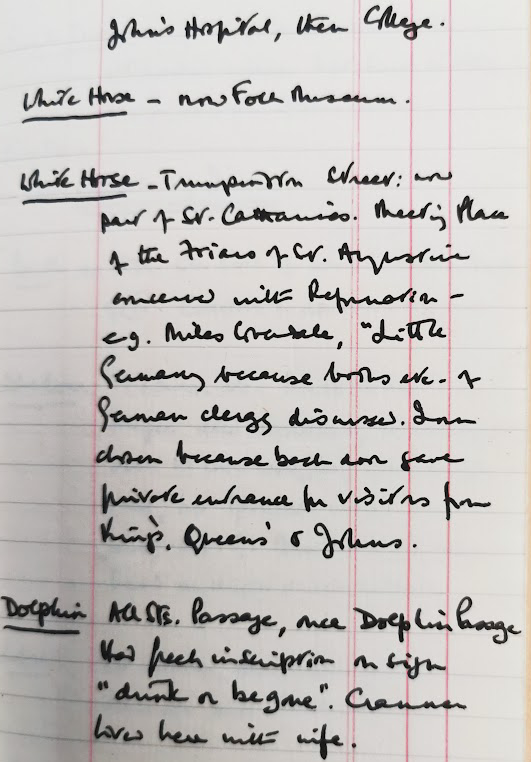 John's Hospital, then College.
White Horse - now Folk Museum.
White Horse - Trumpington Street: now
part of St. Catharines. Meeting Place
of the Friars of St. Augustine
concerned with Reformation -
e.g. Miles Coverdale, "Little
Germany because books etc. of
German clergy discussed. Inn
chosen because back door gave
private entrance for visitors from
King's, Queens' & Johns.
Dolphin All Sts. Passage, once Dolphin Passage
Had inscription on sign
"drink or begone". Cranmer
lived here with wife.